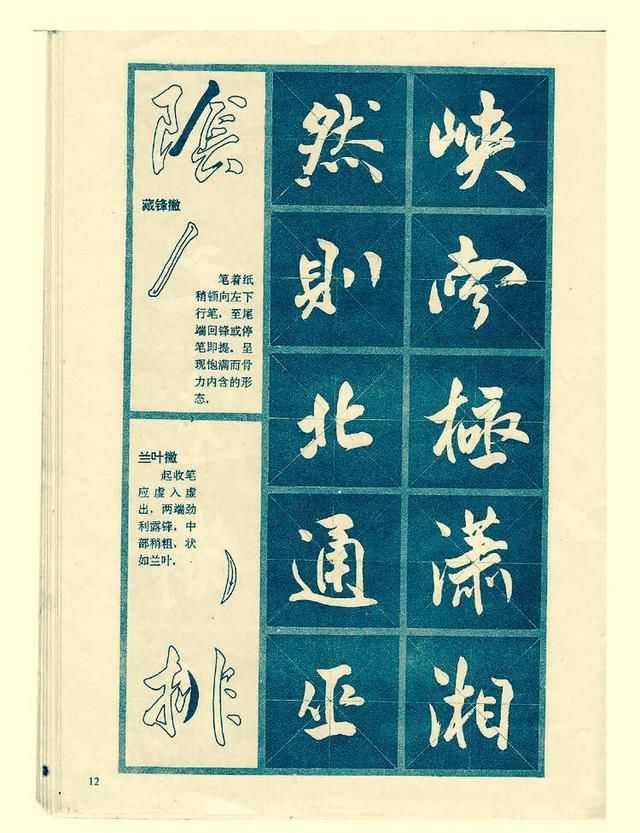 陰
藏锋撇
笔着纸
稍顿向左下
行笔，至尾
端回锋或停
笔即提。呈
现饱满而骨
力内含的形
态。
兰叶撇
起收笔
应虚入虚
出，两端劲
利露锋，中
部稍粗，状
如兰叶。
排
然
則
北
通
巫
峡
南
極
潇
湘
12